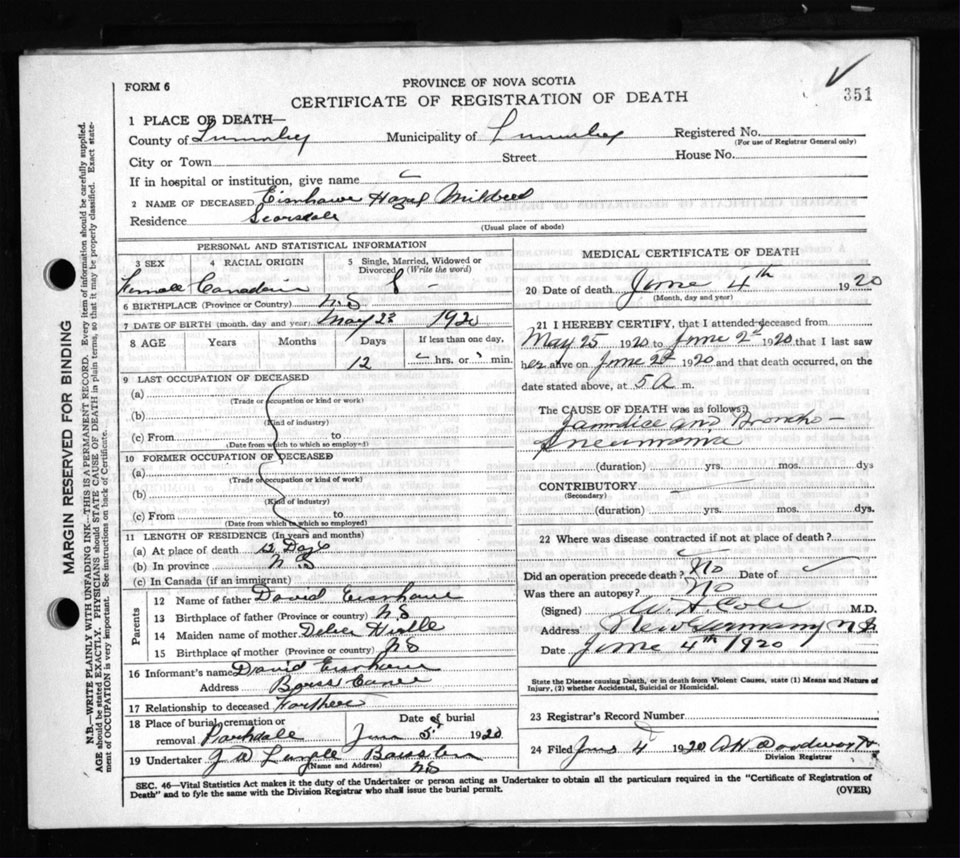 FORM 6
PROVINCE OF NOVA SCOTIA
351
CERTIFICATE OF REGISTRATION OF DEATH
1 PLACE OF DEATH—
County of Municipality of Registered No.
(For use of Registrar General only)
City or Town Street House No.
If in hospital or institution, give name
2 NAME OF DECEASED Hazel Mildred
Residence
(Usual place of abode)
MARGIN RESERVED FOR BINDING
N.B.—WRITE PLAINLY WITH UNFADING INK—THIS IS A PERMANENT RECORD. Every item of information should be carefully supplied.
AGE should be stated EXACTLY. PHYSICIANS should STATE CAUSE OF DEATH in plain terms, so that it may be properly classified. Exact state-
ment of OCCUPATION is very important. See instructions on back of Certificate.
PERSONAL AND STATISTICAL INFORMATION
3 SEX 4 RACIAL ORIGIN 5 Single, Married, Widowed or
Divorced (Write the word)
Female Canadian S
6 BIRTHPLACE (Province or Country) N.S
7 DATE OF BIRTH (month, day and year) May 23 1920
8 AGE Years Months Days If less than one day,
12 hrs. or min.
9 LAST OCCUPATION OF DECEASED
(a)
(Trade or occupation or kind or work)
(b)
(Kind of industry)
(c) From to
(Date from which to which so employed)
10 FORMER OCCUPATION OF DECEASED
(a)
(Trade or occupation or kind of work)
(b)
(Kind of industry)
(c) From to
(Date from which to which so employed)
11 LENGTH OF RESIDENCE (In years and months)
(a) At place of death 12 Days
(b) In province N S
(c) In Canada (if an immigrant)
Parents
12 Name of father David
13 Birthplace of father (Province or country) NS
14 Maiden name of mother
15 Birthplace of mother (Province or country) NS
16 Informant's name David
Address
17 Relationship to deceased
18 Place of burial, cremation or Date of burial
removal June 5 1920
19 Undertaker
(Name and Address)
NS
MEDICAL CERTIFICATE OF DEATH
20 Date of death June 4th 1920
(Month, day and year)
21 I HEREBY CERTIFY, that I attended deceased from
May 25 1920 to June 2nd 1920 that I last saw
her alive on June 2nd 1920 and that death occurred, on the
date stated above, at 5 A m.
The CAUSE OF DEATH was as follows:
Jaundice and Broncho-
Pneumonia
(duration) yrs. mos. dys
CONTRIBUTORY
(Secondary)
(duration) yrs. mos. dys.
22 Where was disease contracted if not at place of death?
Did an operation precede death? No Date of
Was there an autopsy? No
(Signed) W. H Cole M.D.
Address New Germany N S.
Date June 4th 1920
State the Disease causing Death, or in death from Violent Causes, state (1) Means and Nature of
Injury, (2) whether Accidental, Suicidal or Homicidal.
23 Registrar's Record Number
24 Filed June 4 1920
Division Registrar
SEC. 46—Vital Statistics Act makes it the duty of the Undertaker or person acting as Undertaker to obtain all the particulars required in the "Certificate of Registration of
Death" and to fyle the same with the Division Registrar who shall issue the burial permit.
(OVER)